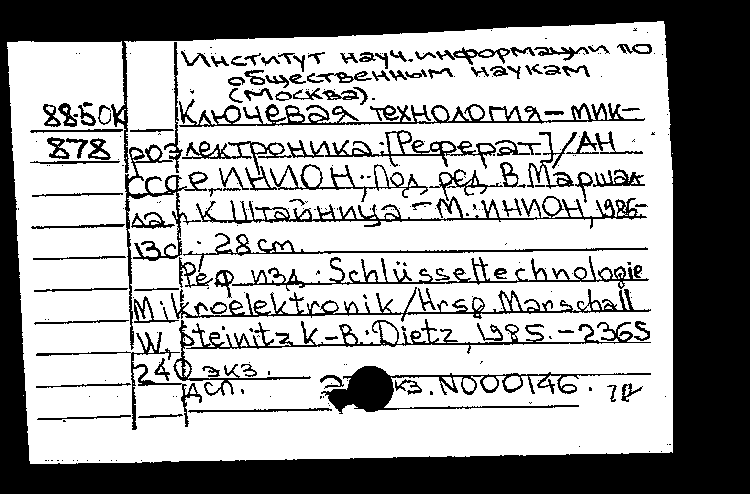 Институт науч. информации по
общественным наукам
(Москва).
88-50К Ключевая технология – мик-
878 роэлектроника: [Реферат] / АН
СССР, ИНИОН; Под ред. В. Маршал
ла и К. Штайница. – М.: ИНИОН, 1986.-
13с.: 28 cm.
Реф изд.: Schlüsseltechnologie
Mikroelektronik / Hrsg. Marschall
W., Steinitz K. – B.: Dietz, 1985. – 236S
240 экз.
ДСП. кз. N000146.